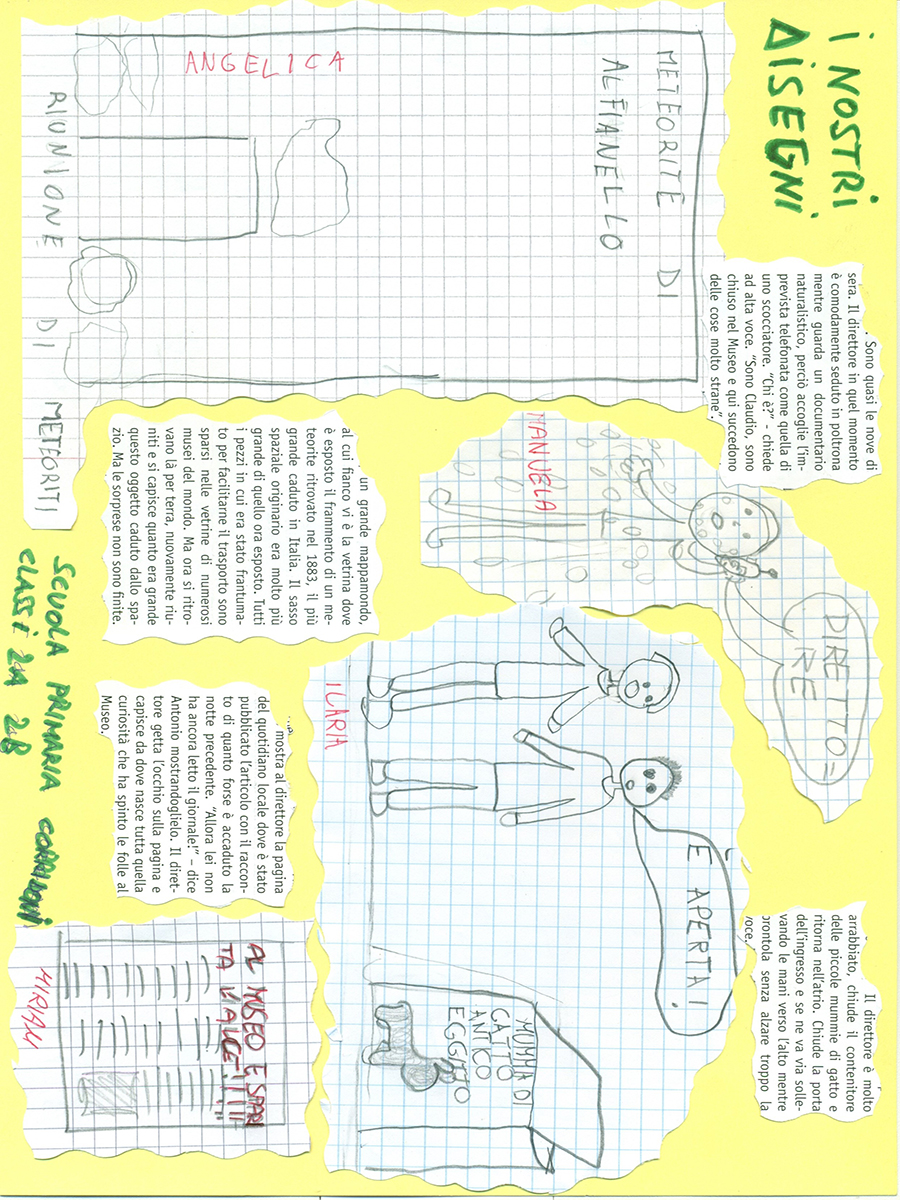 i NOSTRi
DiSEGNi
. Sono quasi le nove di
sera. Il direttore in quel momento
è comodamente seduto in poltrona
mentre guarda un documentario
naturalistico, perciò accoglie l'im-
prevista telefonata come quella di
uno scocciatore. "Chi è?" - chiede
ad alta voce. "Sono Claudio, sono
chiuso nel Museo e qui succedono
delle cose molto strane".
DIRETTO=
RE
MANUELA
Il direttore è molto
arrabbiato, chiude il contenitore
delle piccole mummie di gatto e
ritorna nell'atrio. Chiude la porta
dell'ingresso e se ne va via solle-
vando le mani verso l'alto mentre
brontola senza alzare troppo la
voce.
METEORITE DI
ALFIANELLO
ANGELICA
RIUNIONE DI METEORITI
È APERTA!
MUMMA DI
GATTO
ANTICO
EGGITTO
ILARIA
un grande mappamondo,
al cui fianco vi è la vetrina dove
è esposto il frammento di un me-
teorite ritrovato nel 1883, il più
grande caduto in Italia. Il sasso
spaziale originario era molto più
grande di quello ora esposto. Tutti
i pezzi in cui era stato frantuma-
to per facilitarne il trasporto sono
sparsi nelle vetrine di numerosi
musei del mondo. Ma ora si ritro-
vano là per terra, nuovamente riu-
niti e si capisce quanto era grande
questo oggetto caduto dallo spa-
zio. Ma le sorprese non sono finite.
mostra al direttore la pagina
del quotidiano locale dove è stato
pubblicato l'articolo con il raccon-
to di quanto forse è accaduto la
notte precedente. "Allora lei non
ha ancora letto il giornale!" – dice
Antonio mostrandoglielo. Il diret-
tore getta l'occhio sulla pagina e
capisce da dove nasce tutta quella
curiosità che ha spinto le folle al
Museo.
AL MUSEO È SPARI
TA L'ALCE!!!!!
MIRIAM
SCUOLA PRIMARIA CORRIDONI
CLASSi 2A 2B